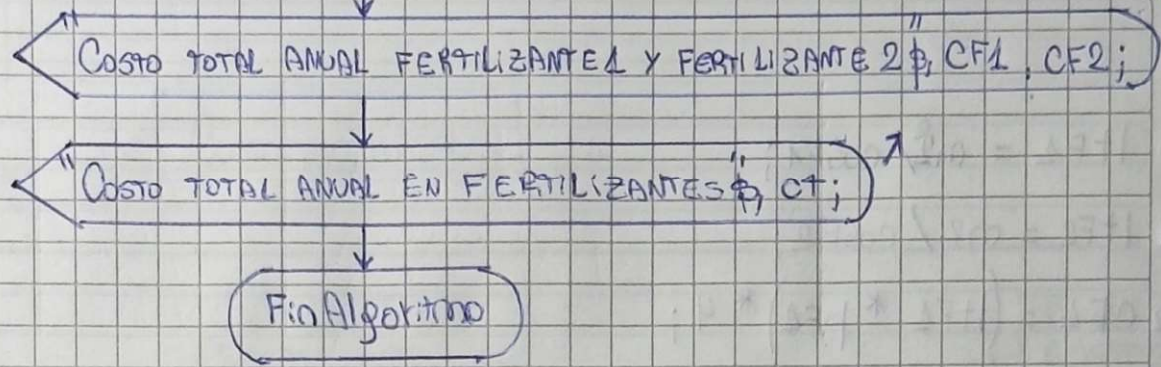 "Costo TOTAL ANUAL FERTILIZANTE1 Y FERTILIZANTE 2", CF1, CF2;
"Costo TOTAL ANUAL EN FERTILIZANTES", Ct;
FinAlgoritmo